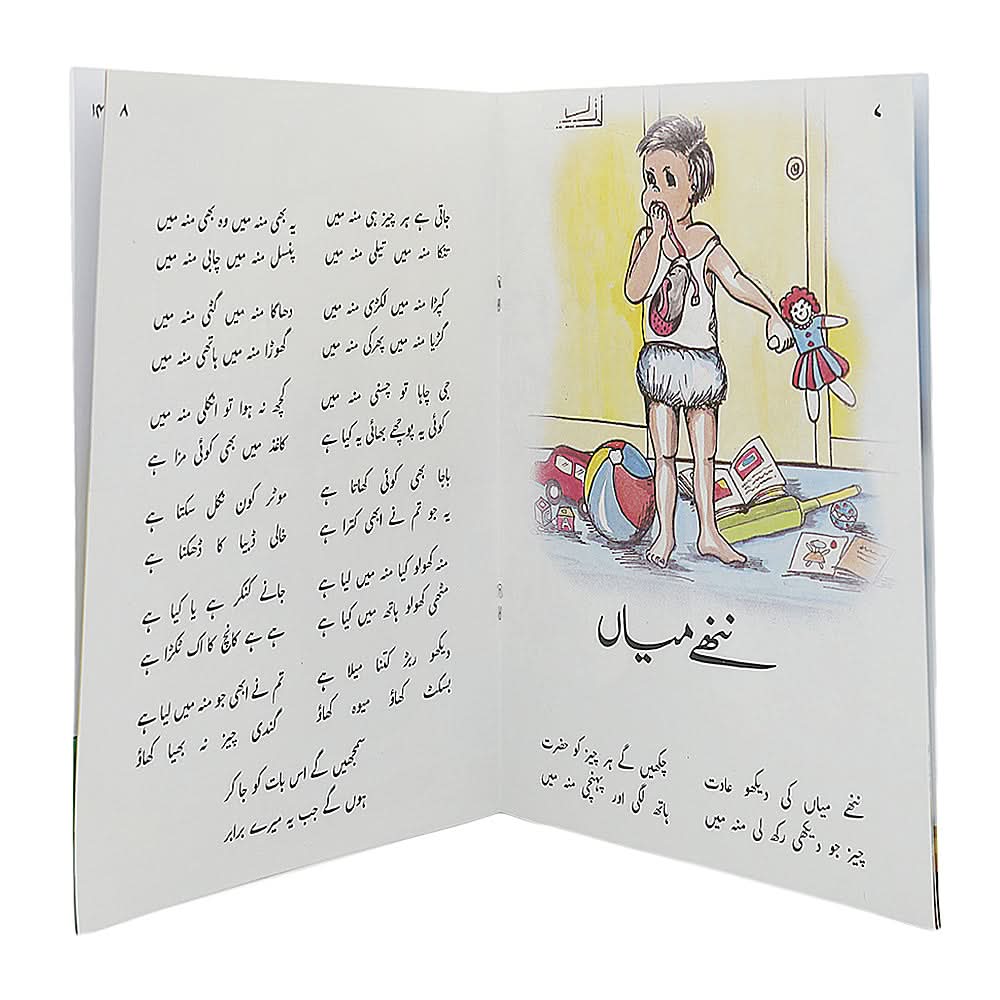 ۷
ننھے میاں
ننھے میاں کی دیکھو عادت    چکھیں گے ہر چیز کو حضرت
چیز جو دیکھی رکھ لی منہ میں    ہاتھ لگی اور پہنچی منہ میں
۸
جاتی ہے ہر چیز ہی منہ میں    یہ بھی منہ میں وہ بھی منہ میں
تنکا منہ میں تیلی منہ میں    پنسل منہ میں چابی منہ میں
کپڑا منہ میں لکڑی منہ میں    دھاگا منہ میں گٹی منہ میں
گڑیا منہ میں پھرکی منہ میں    گھوڑا منہ میں ہاتھی منہ میں
جی چاہا تو چسنی منہ میں    کچھ نہ ہوا تو انگلی منہ میں
کوئی یہ پوچھے بھائی یہ کیا ہے    کاغذ میں بھی کوئی مزا ہے
باجا بھی کوئی کھاتا ہے    موٹر کون نگل سکتا ہے
یہ جو تم نے ابھی کترا ہے    خالی ڈبیا کا ڈھکنا ہے
منہ کھولو کیا منہ میں لیا ہے    جانے کنکر ہے یا کیا ہے
مٹھی کھولو ہاتھ میں کیا ہے    ہے ہے کانچ کا اک ٹکڑا ہے
دیکھو ربڑ کتنا میلا ہے    تم نے ابھی جو منہ میں لیا ہے
بسکٹ کھاؤ میوہ کھاؤ    گندی چیز نہ بھیا کھاؤ
سمجھیں گے اس بات کو جا کر
ہوں گے جب یہ میرے برابر